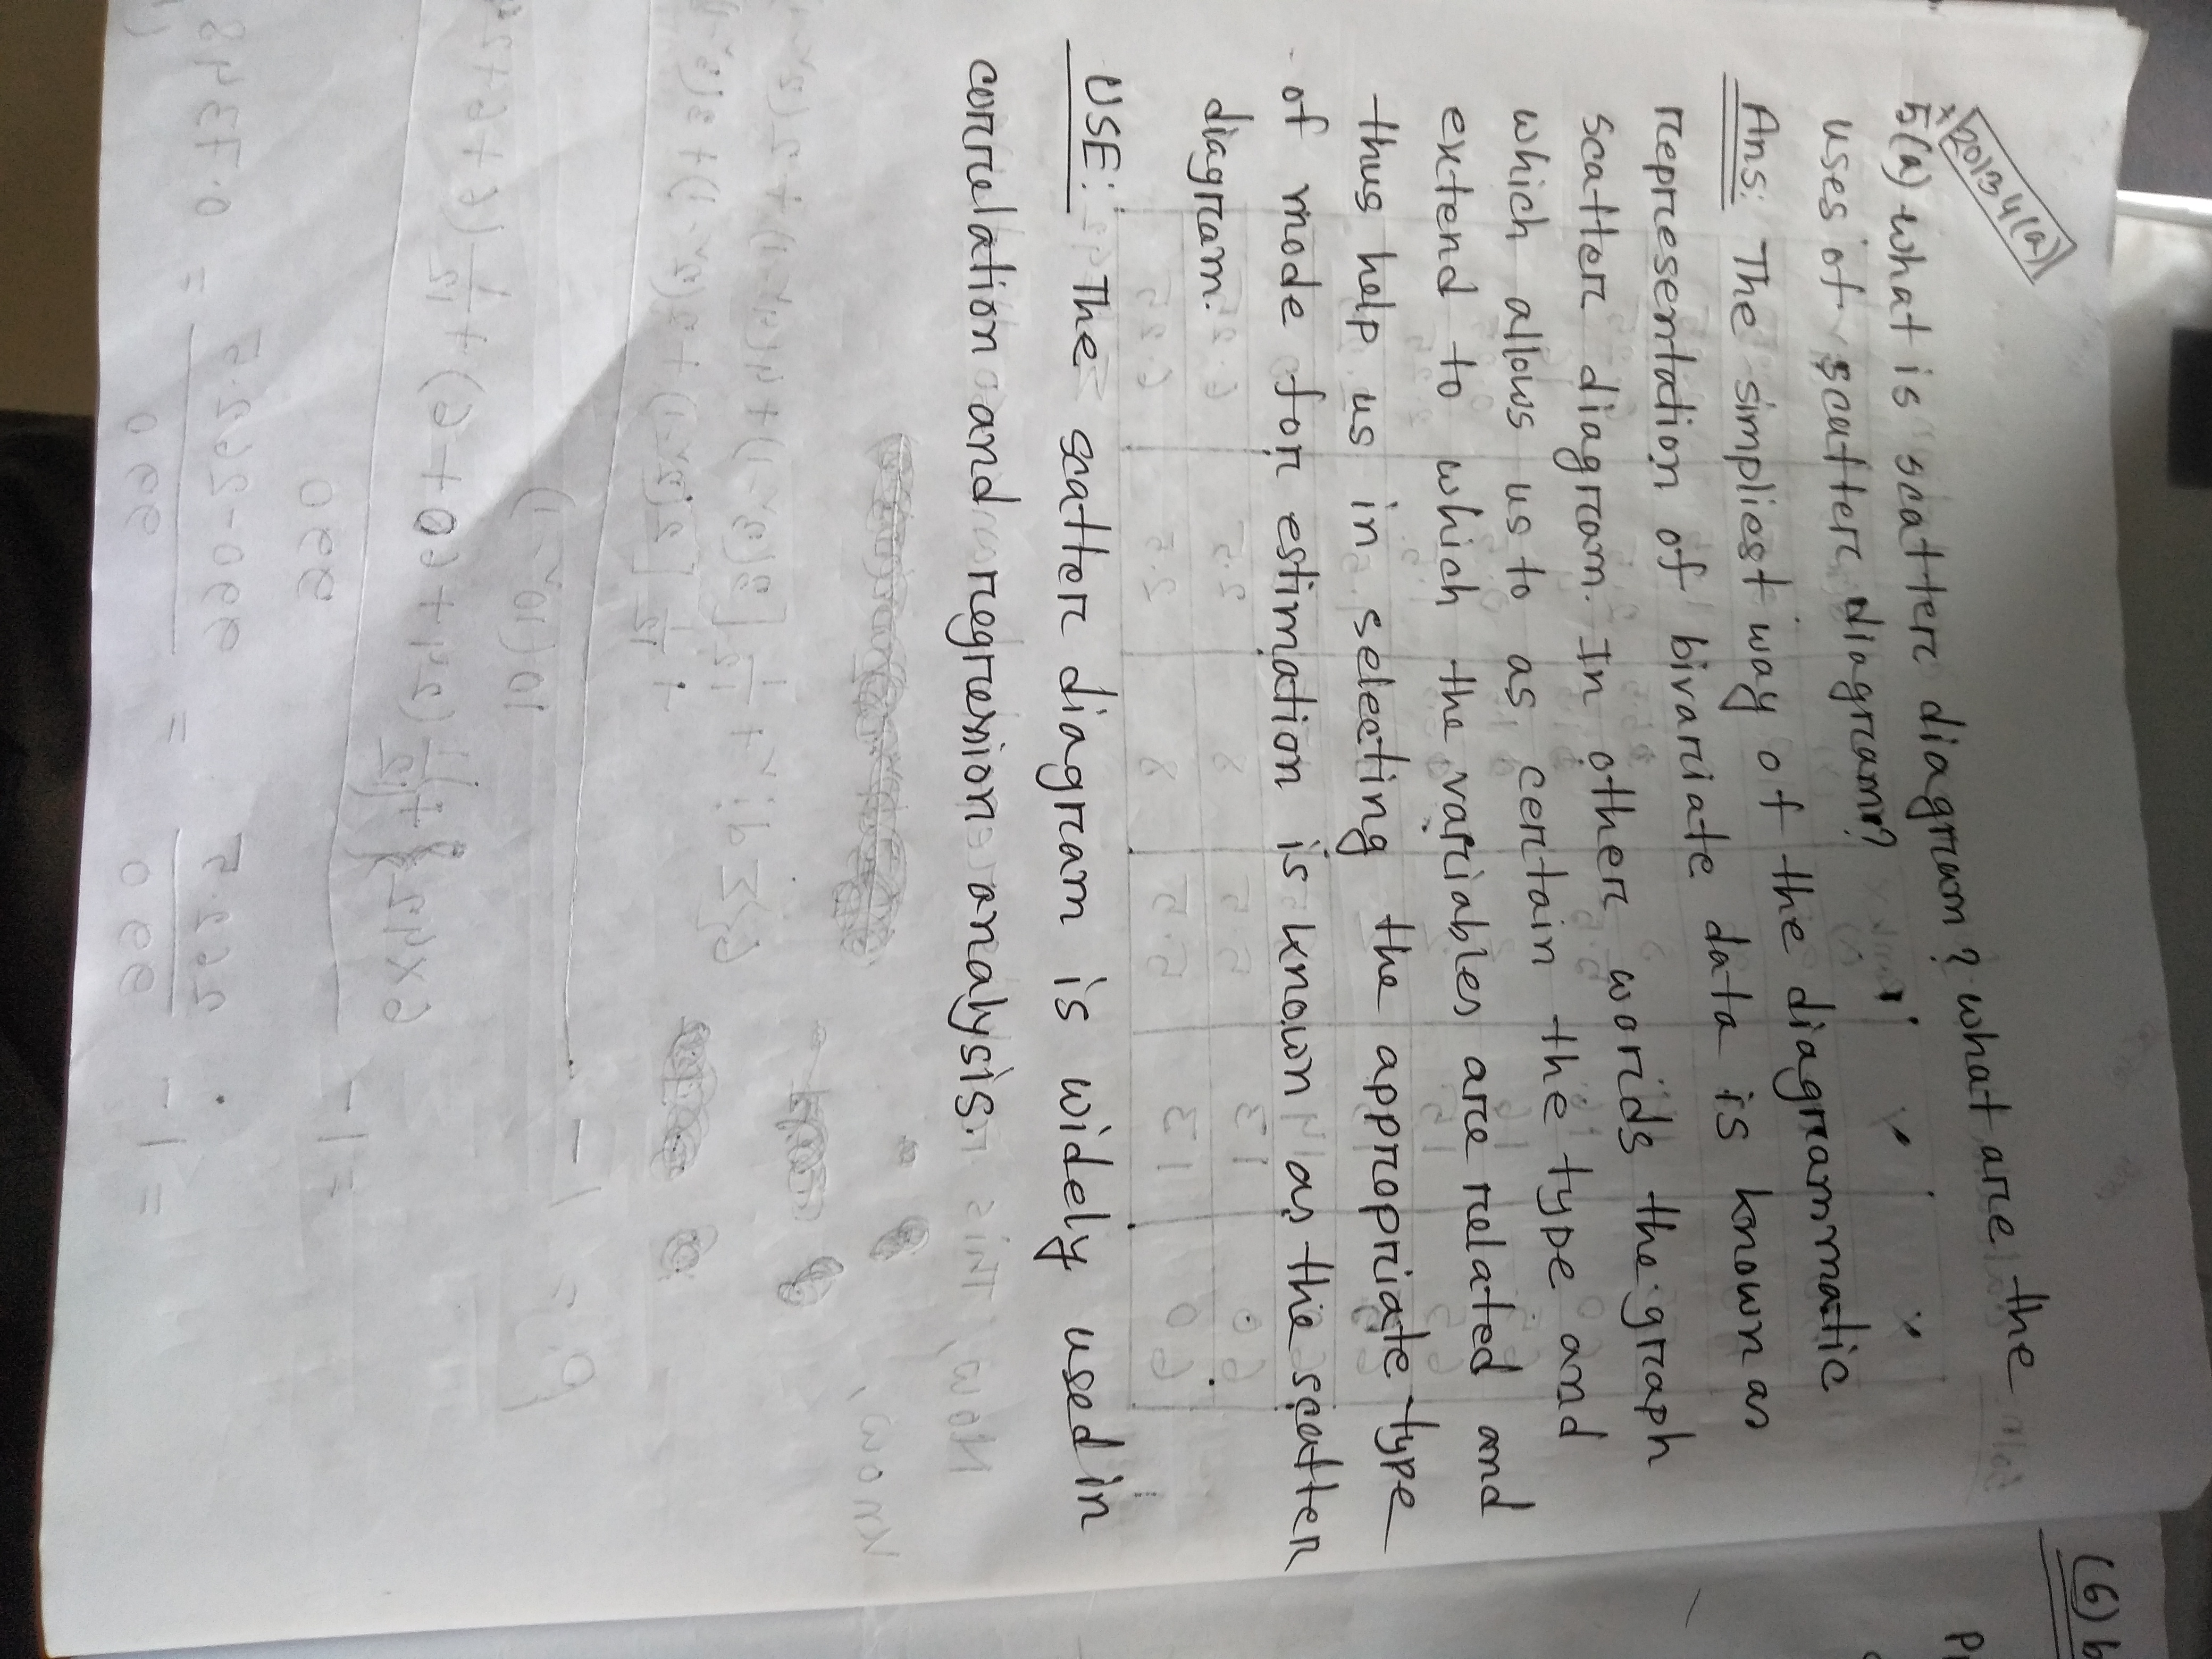 2013 4(a)
5(a) what is scatter diagram? what are the
uses of scatter diagram?
Ans: The simpliest way of the diagrammatic
representation of bivariate data is known as
scatter diagram. In other words the graph
which allows us to as certain the type and
extend to which the variables are related and
thus help us in selecting the appropriate type
of mode for estimation is known as the scatter
diagram.
USE: The scatter diagram is widely used in
correlation and regression analysis.
(6) b